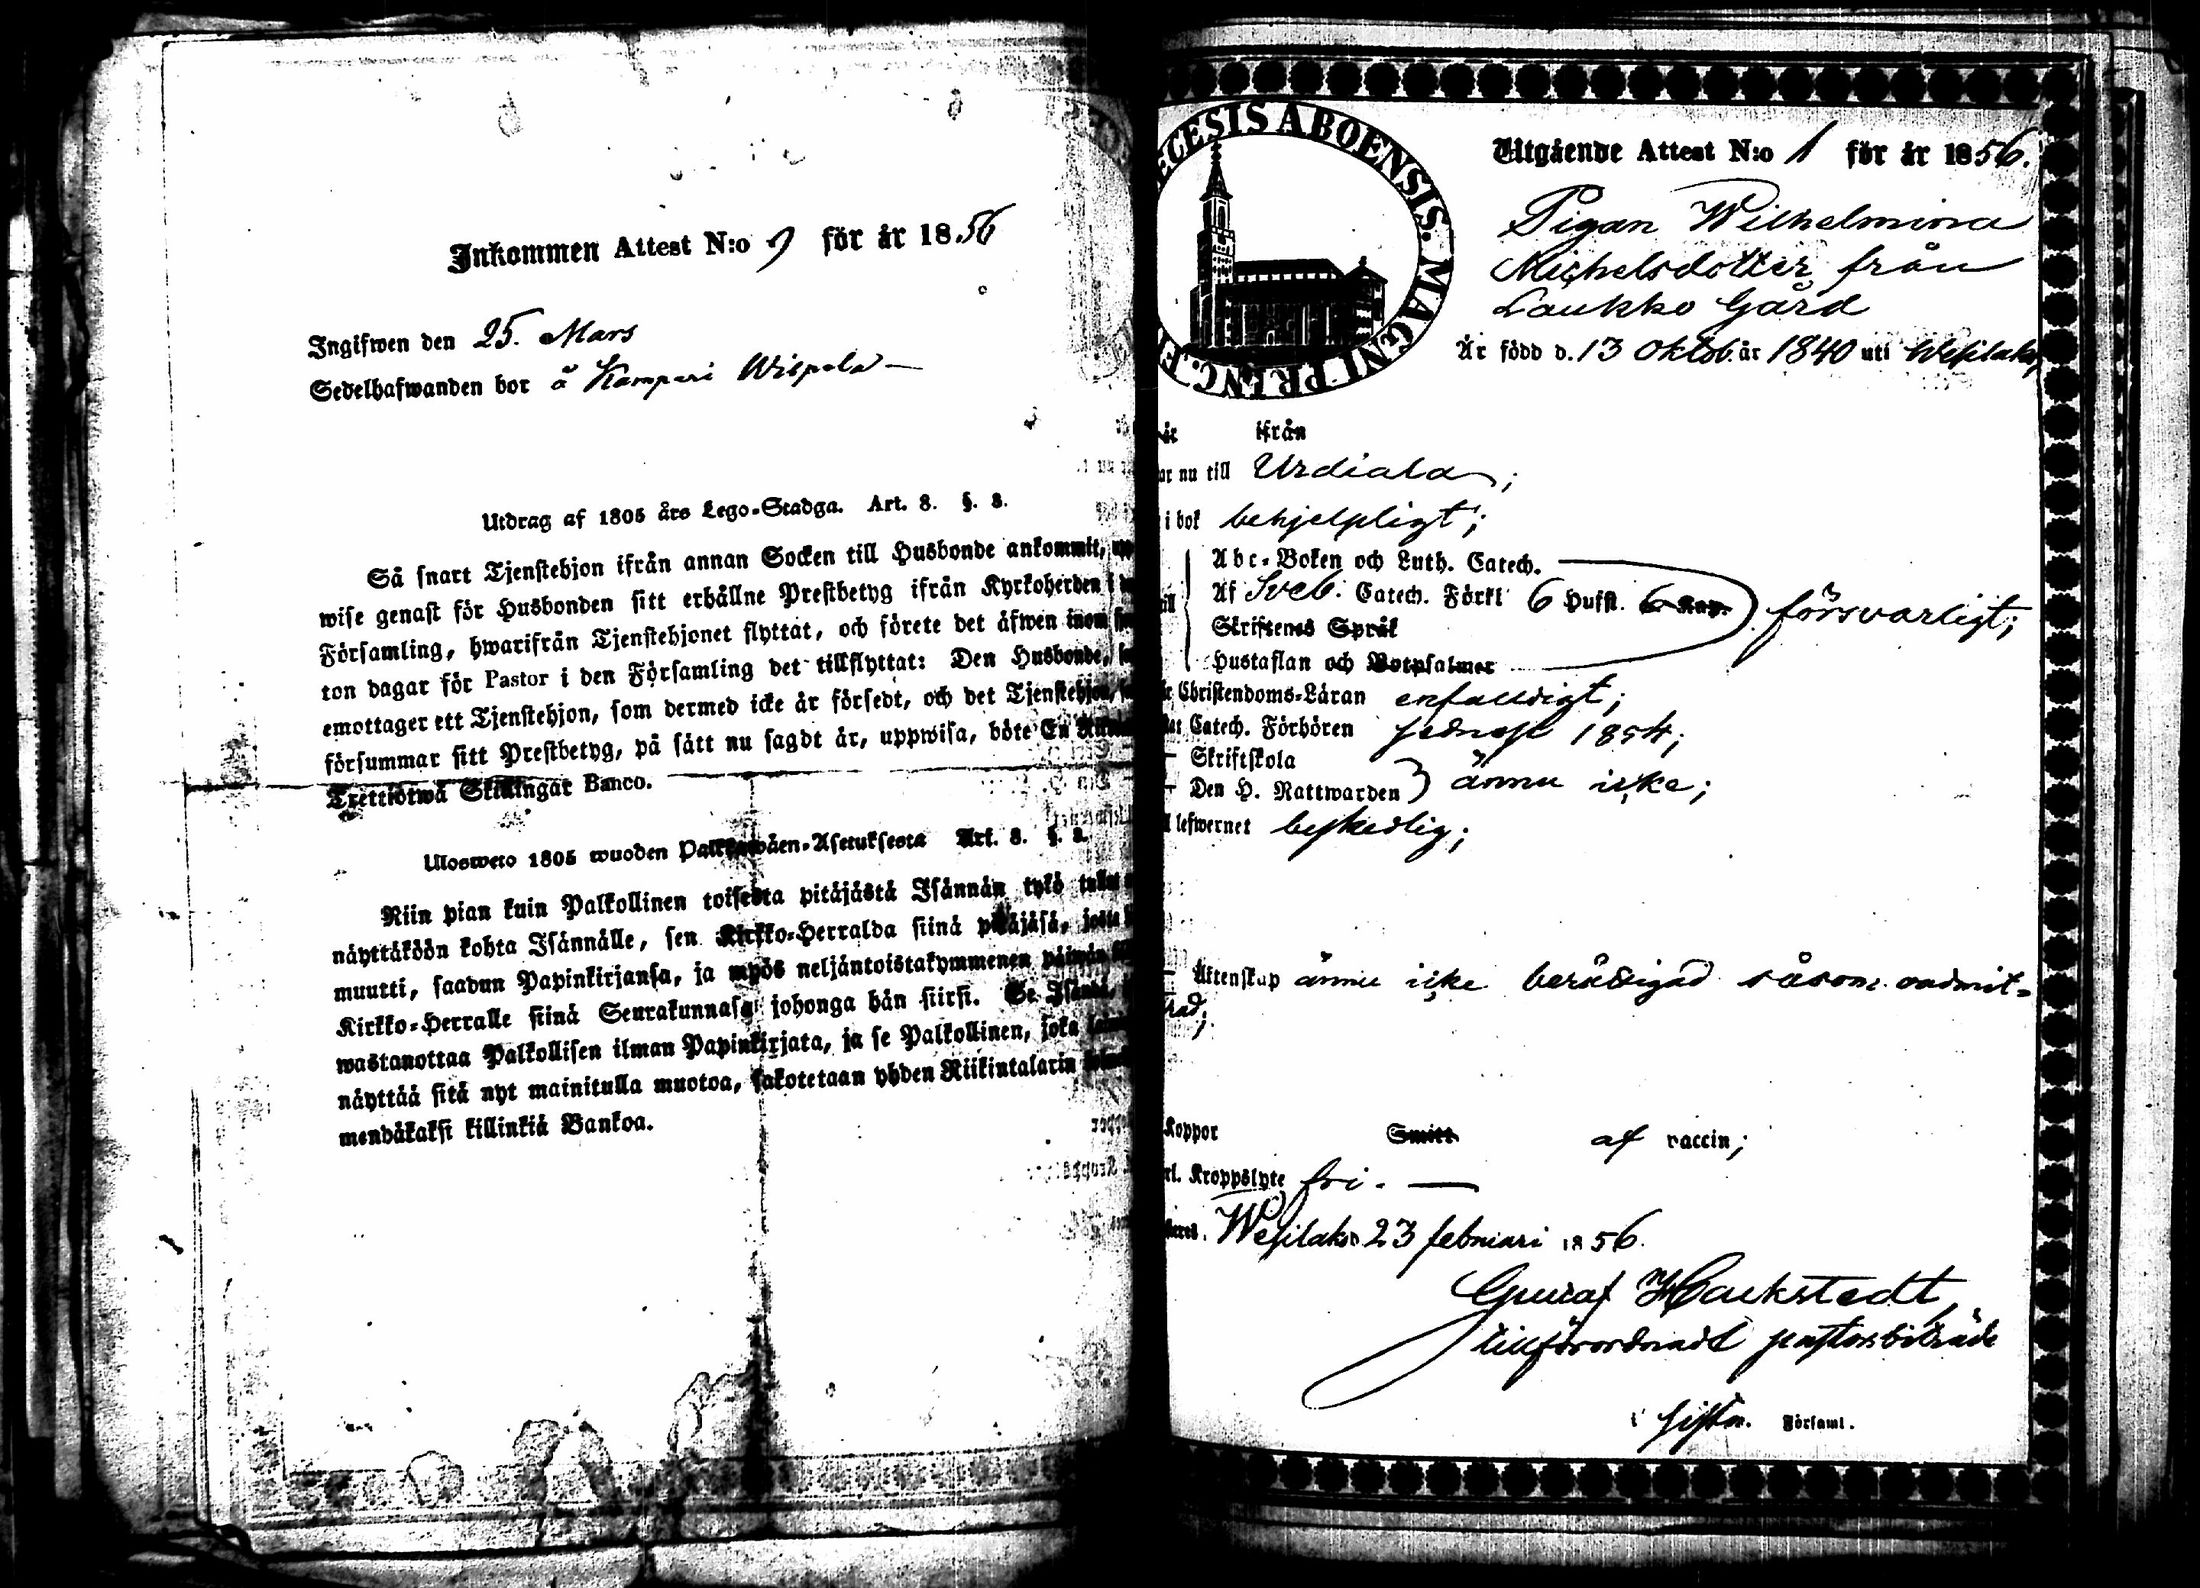 Inkommen Attest N:o 9 för år 1856
Ingifwen den 25. Mars
Sedelhafwanden bor å Kamperi Wispola
Utdrag af 1805 års Lego-Stadga. Art. 8. §. 8.
Så snart Tjenstehjon ifrån annan Socken till Husbonde ankommit,
wise genast för Husbonden sitt erhållne Prestbetyg ifrån Kyrkoherden i
Församling, hwarifrån Tjenstehjonet flyttat, och förete det äfwen inom
ton dagar för Pastor i den Församling det tillflyttat: Den Husbonde,
emottager ett Tjenstehjon, som dermed icke är försedt, och det Tjenstehjon,
försummar sitt Prestbetyg, på sätt nu sagdt är, uppwisa, böte En
Trettiotwå Skillingar Banco.
Ulosweto 1805 wuoden Palkkawäen-Asetuksesta Art. 8. §. 8.
Niin pian kuin Palkollinen toisesta pitäjästä Isännän tykö
näyttäköön kohta Isännälle, sen Kirkko-Herralda siinä pitäjäsä, josta
muutti, saadun Papinkirjansa, ja myös neljäntoistakymmenen päiwän
Kirkko-Herralle siinä Seurakunnasa johonga hän siirsi. Se Isändä,
wastanottaa Palkollisen ilman Papinkirjata, ja se Palkollinen, joka
näyttää sitä nyt mainitulla muotoa, sakotetaan yhden Riikintalarin
mendäkaksi killinkiä Bankoa.
ECESIS ABOENSIS. MAGNI PRINC. F
Utgående Attest N:o 1 för år 1856.
Pigan Wilhelmina
Michelsdotter från
Laukko Gård
Är född d. 13 Oktob. år 1840 uti Wesilaks,
ifrån
nu till Urdiala;
i bok behjelpligt;
Abc-Boken och Luth. Catech.
Af Sveb. Catech. Förkl 6 Hufst. 6 Kap. försvarligt;
Skriftenes Språk
Hustaflan och Botpsalmer
Christendoms-Läran enfaldigt;
Catech. Förhören sednast 1854;
Skriftskola
Den H. Nattwarden } ännu icke;
lefwernet beskedlig;
Äktenskap ännu icke berättigad såsom oadmit-
rad;
Koppor Smitt af vaccin;
Kroppslyte fri.
Wesilaks 23 februari 1856.
Gustaf Hackstedt,
tillförordnadt pastorsbiträde
i sistn. Församl.